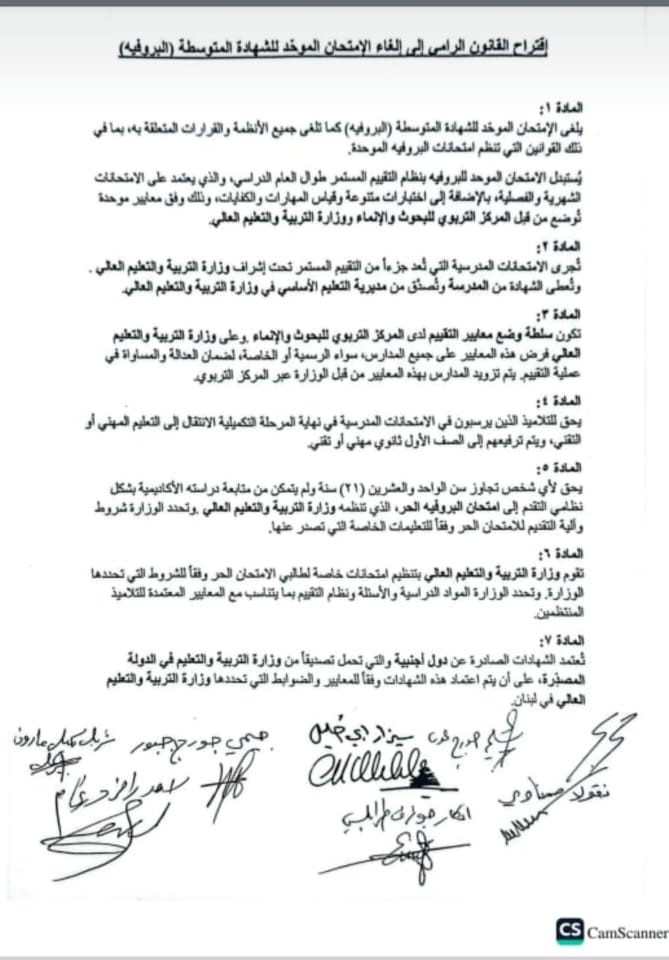 إقتراح القانون الرامي إلى إلغاء الإمتحان الموحّد للشهادة المتوسطة (البروفيه)
المادة ١:
يلغى الإمتحان الموحّد للشهادة المتوسطة (البروفيه) كما تلغى جميع الأنظمة والقرارات المتعلقة به، بما في
ذلك القوانين التي تنظم امتحانات البروفيه الموحدة.
يُستبدل الامتحان الموحد للبروفيه بنظام التقييم المستمر طوال العام الدراسي، والذي يعتمد على الامتحانات
الشهرية والفصلية، بالإضافة إلى اختبارات متنوعة وقياس المهارات والكفايات، وذلك وفق معايير موحدة
تُوضع من قبل المركز التربوي للبحوث والإنماء ووزارة التربية والتعليم العالي.
المادة ٢:
تُجرى الامتحانات المدرسية التي تُعد جزءاً من التقييم المستمر تحت إشراف وزارة التربية والتعليم العالي .
وتُعطى الشهادة من المدرسة وتُصدّق من مديرية التعليم الأساسي في وزارة التربية والتعليم العالي.
المادة ٣:
تكون سلطة وضع معايير التقييم لدى المركز التربوي للبحوث والإنماء .وعلى وزارة التربية والتعليم
العالي فرض هذه المعايير على جميع المدارس، سواء الرسمية أو الخاصة، لضمان العدالة والمساواة في
عملية التقييم. يتم تزويد المدارس بهذه المعايير من قبل الوزارة عبر المركز التربوي.
المادة ٤:
يحق للتلاميذ الذين يرسبون في الامتحانات المدرسية في نهاية المرحلة التكميلية الانتقال إلى التعليم المهني أو
التقني، ويتم ترفيعهم إلى الصف الأول ثانوي مهني أو تقني.
المادة ٥:
يحق لأي شخص تجاوز سن الواحد والعشرين (٢١) سنة ولم يتمكن من متابعة دراسته الأكاديمية بشكل
نظامي التقدم إلى امتحان البروفيه الحر، الذي تنظمه وزارة التربية والتعليم العالي .وتحدد الوزارة شروط
وآلية التقديم للامتحان الحر وفقاً للتعليمات الخاصة التي تصدر عنها.
المادة ٦:
تقوم وزارة التربية والتعليم العالي بتنظيم امتحانات خاصة لطالبي الامتحان الحر وفقاً للشروط التي تحددها
الوزارة. وتحدد الوزارة المواد الدراسية والأسئلة ونظام التقييم بما يتناسب مع المعايير المعتمدة للتلاميذ
المنتظمين.
المادة ٧:
تُعتمد الشهادات الصادرة عن دول أجنبية والتي تحمل تصديقاً من وزارة التربية والتعليم في الدولة
المصدّرة، على أن يتم اعتماد هذه الشهادات وفقاً للمعايير والضوابط التي تحددها وزارة التربية والتعليم
العالي في لبنان.
سيزار ابي خليل
جيمي جورج جبور
شربل مارون
نقولا صحناوي
ادكار جوزف طرابلسي
CS CamScanner